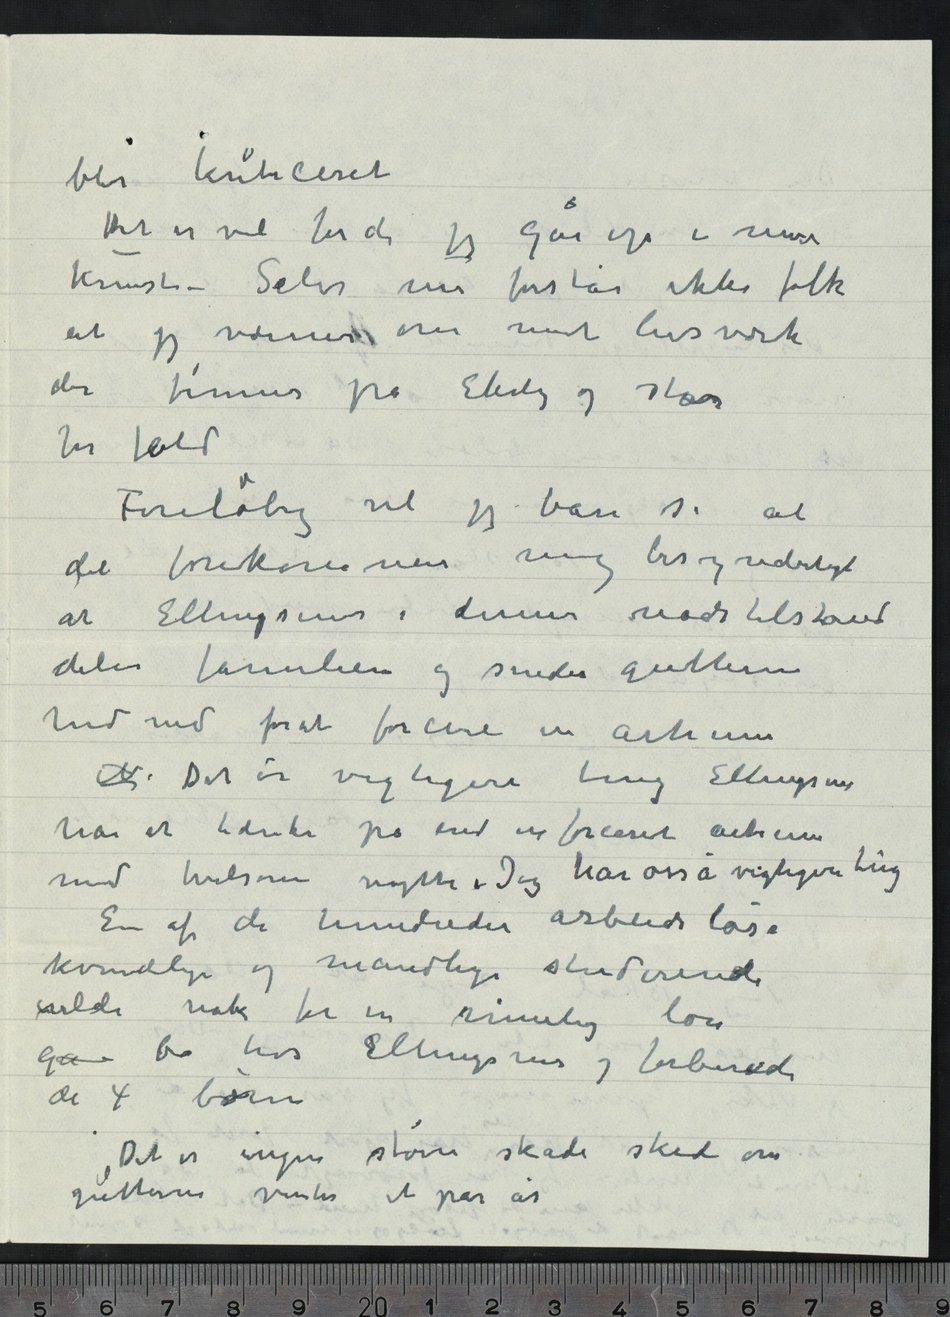 blir kriticeret
Det er vel fordi jeg går op i min
kunst – Selv nu forstår ikke folk
at jeg værner om mit livsværk
der finnes på Ekely og står
for fald
Foreløbig vil jeg bare si at
det forekommer mig besynderligt
at Ellingsens i denne nødstilstand
deler familien og sender guttene
ind ned forat forcere en artium
Det er vigtigere ting Ellingsens
har at tænke på end en forceret artium
med tvilsom nytte. Jeg har også vigtigere ting
En af de hundreder arbeidsløse
kvindelige og mandlige studerende
vilde nok for en rimelig løn
bo hos Ellingsens og forberede
de 4 børn
Det er ingen større skade sked om
guttene venter et par år
5 6 7 8 9 20 1 2 3 4 5 6 7 8 9